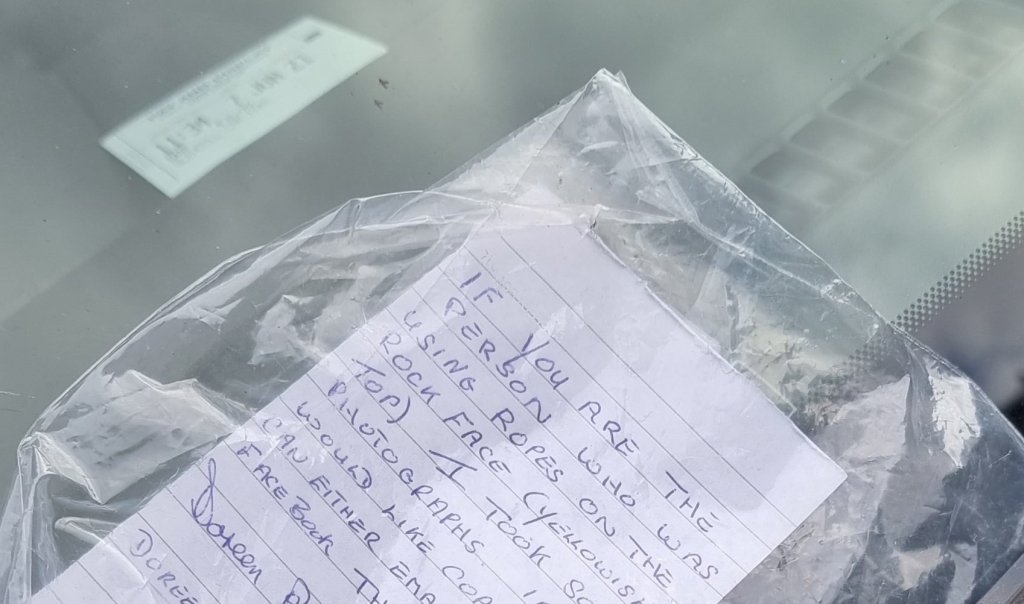 IF YOU ARE THE
PERSON WHO WAS
USING ROPES ON THE
ROCK FACE (YELLOWISH
TOP) I TOOK SO
PHOTOGRAPHS. I
WOULD LIKE COP
CAN EITHER EMA
FACEBOOK TH
Doreen D
DOREE